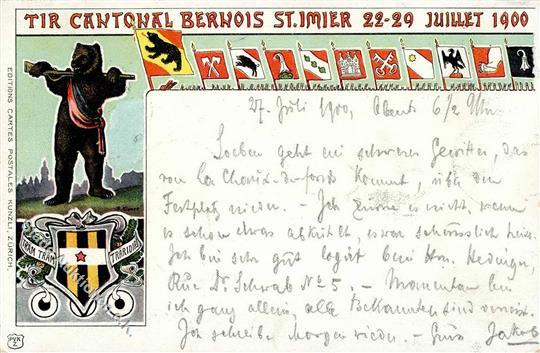 TIR CANTONAL BERNOIS ST. IMIER 22-29 JUILLET 1900
27. Juli 1900, Abends 6 1/2 Uhr
Soeben geht ein schweres Gewitter, das
von La Chaux-de-fonds kommt, über den
Festplatz nieder. – Ich zürne es nicht, wenn
es schon etwas abkühlt, es war scheusslich heiss.
Ich bin sehr gut logirt beim Hrn. Hediger,
Rue Dr. Schwab No 5. – Momentan bin
ich ganz allein, alle Bekannten sind verreist.
Ich schreibe Morgen wieder. – Gruss Jakob
EDITIONS CARTES POSTALES KUNZLI, ZÜRICH.
TRAM TRAM TRARIDIRI
PKK
Z